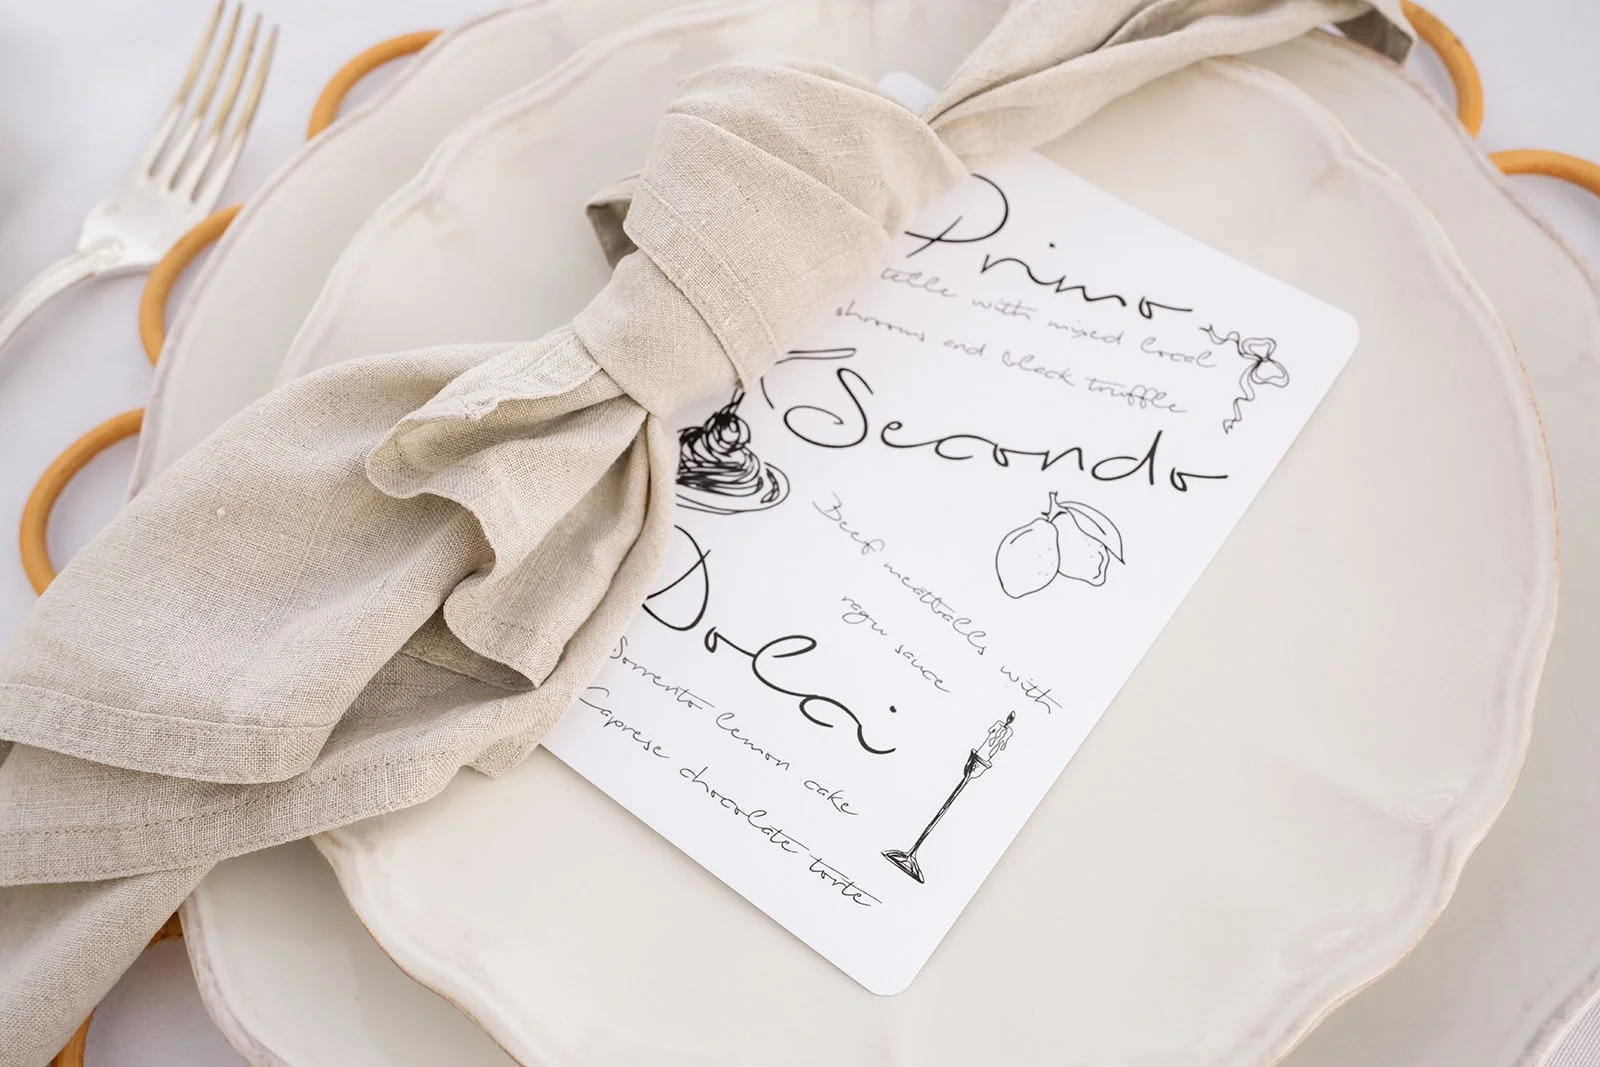 Primo
with mixed local
shrooms and black truffle
Secondo
Beef meatballs with
ragu sauce
Dolci
Sorrento lemon cake
Caprese chocolate torte